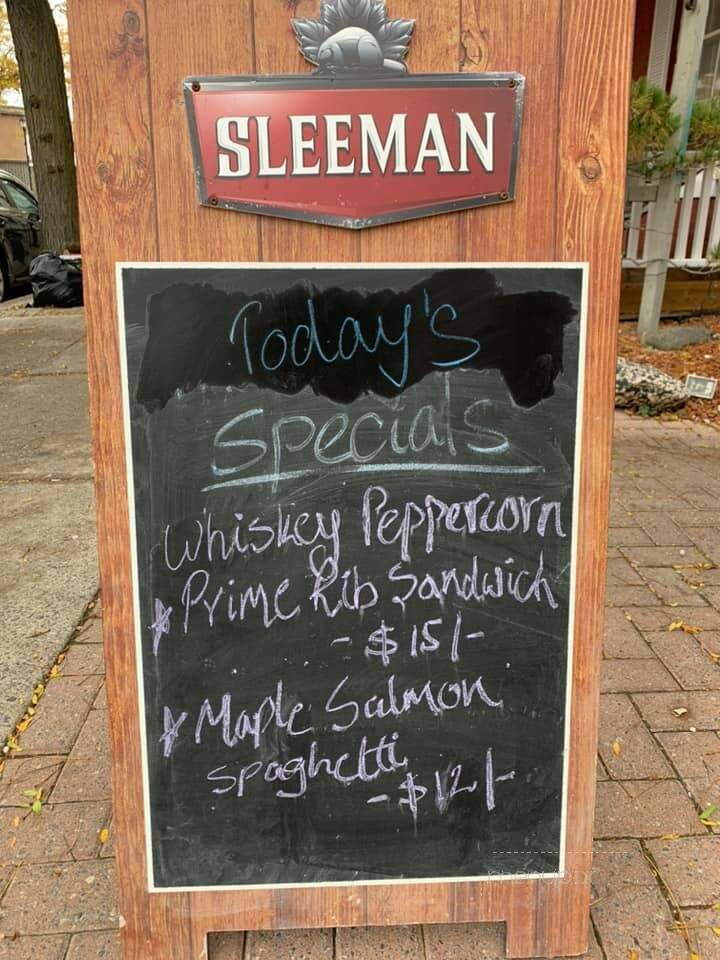 SLEEMAN
Today's
Specials
Whiskey Peppercorn
* Prime Rib Sandwich
- $15/-
* Maple Salmon
spaghetti
- $12/-